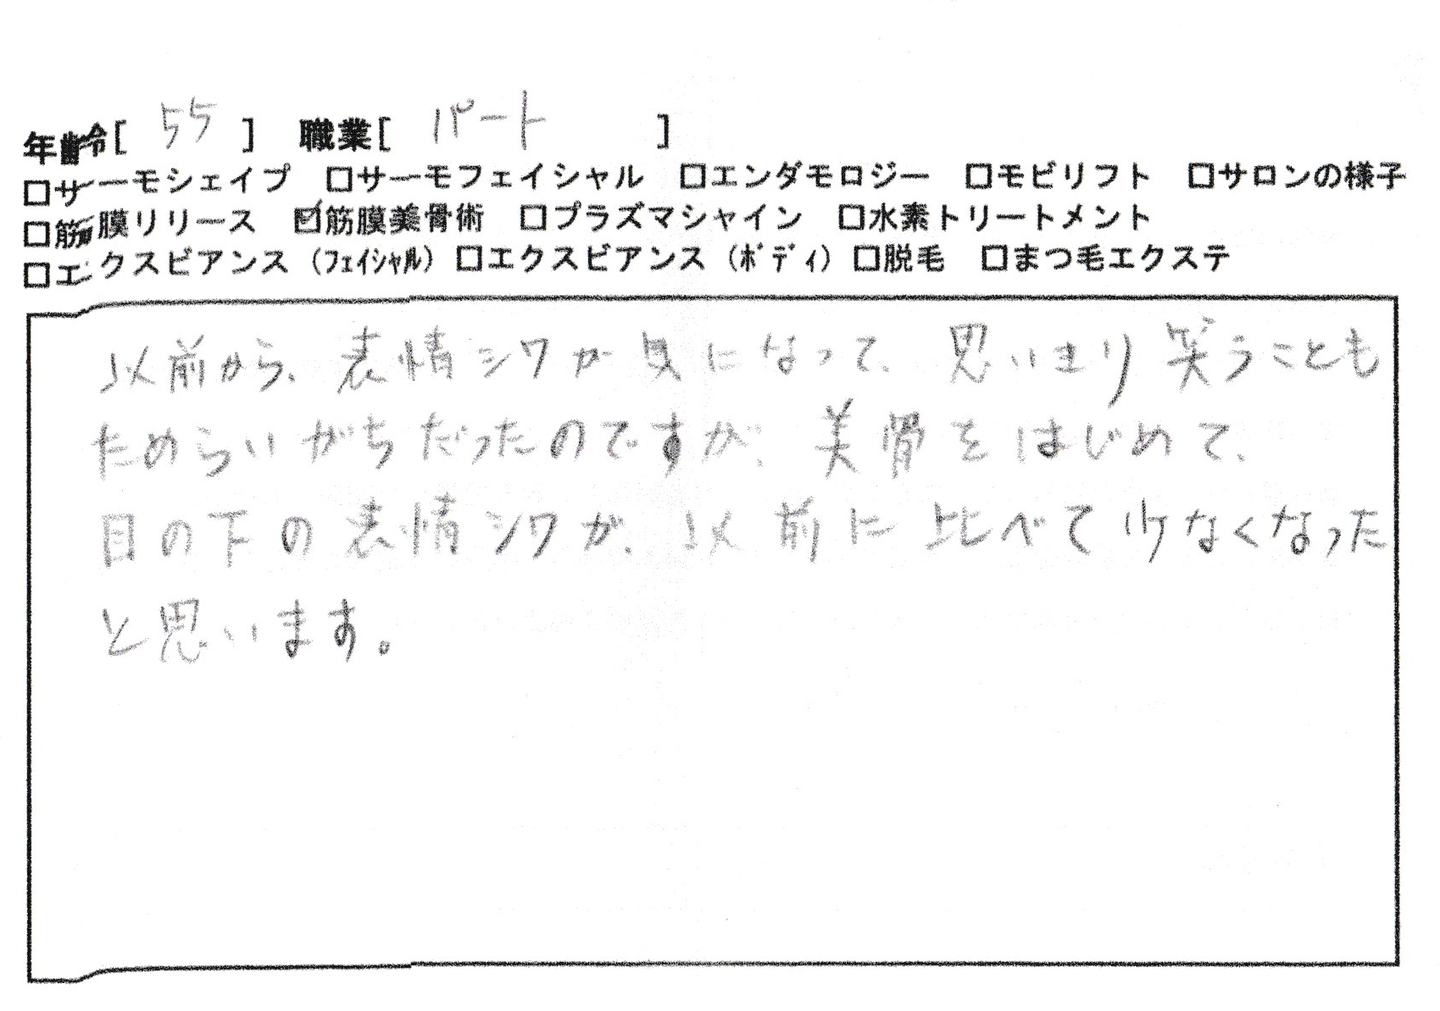 年齢[ 55 ] 職業[ パート ]
□サーモシェイプ □サーモフェイシャル □エンダモロジー □モビリフト □サロンの様子
□筋膜リリース ☑筋膜美骨術 □プラズマシャイン □水素トリートメント
□エクスビアンス（フェイシャル）□エクスビアンス（ボディ）□脱毛 □まつ毛エクステ
以前から、表情シワが気になって、思いきり笑うことも
ためらいがちだったのですが、美骨をはじめて、
目の下の表情シワが、以前に比べて少なくなった
と思います。